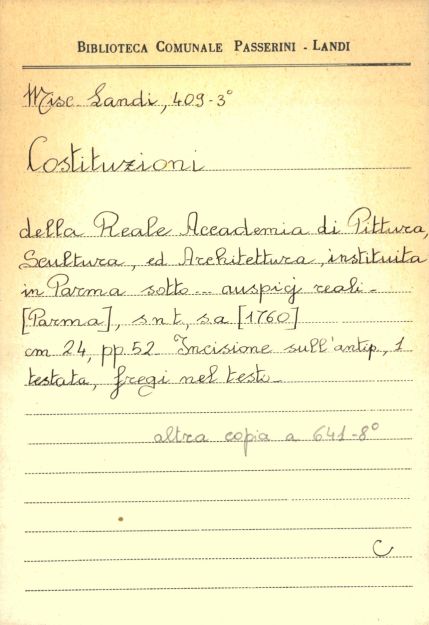 BIBLIOTECA COMUNALE PASSERINI - LANDI
Misc. Landi, 409-3°
Costituzioni
della Reale Accademia di Pittura,
Scultura, ed Architettura, instituita
in Parma sotto ... auspicj reali.
[Parma], s.n.t, s.a [1760]
cm 24, pp. 52 Incisione sull'antip., 1
testata, fregi nel testo.
altra copia a 641-8°
C